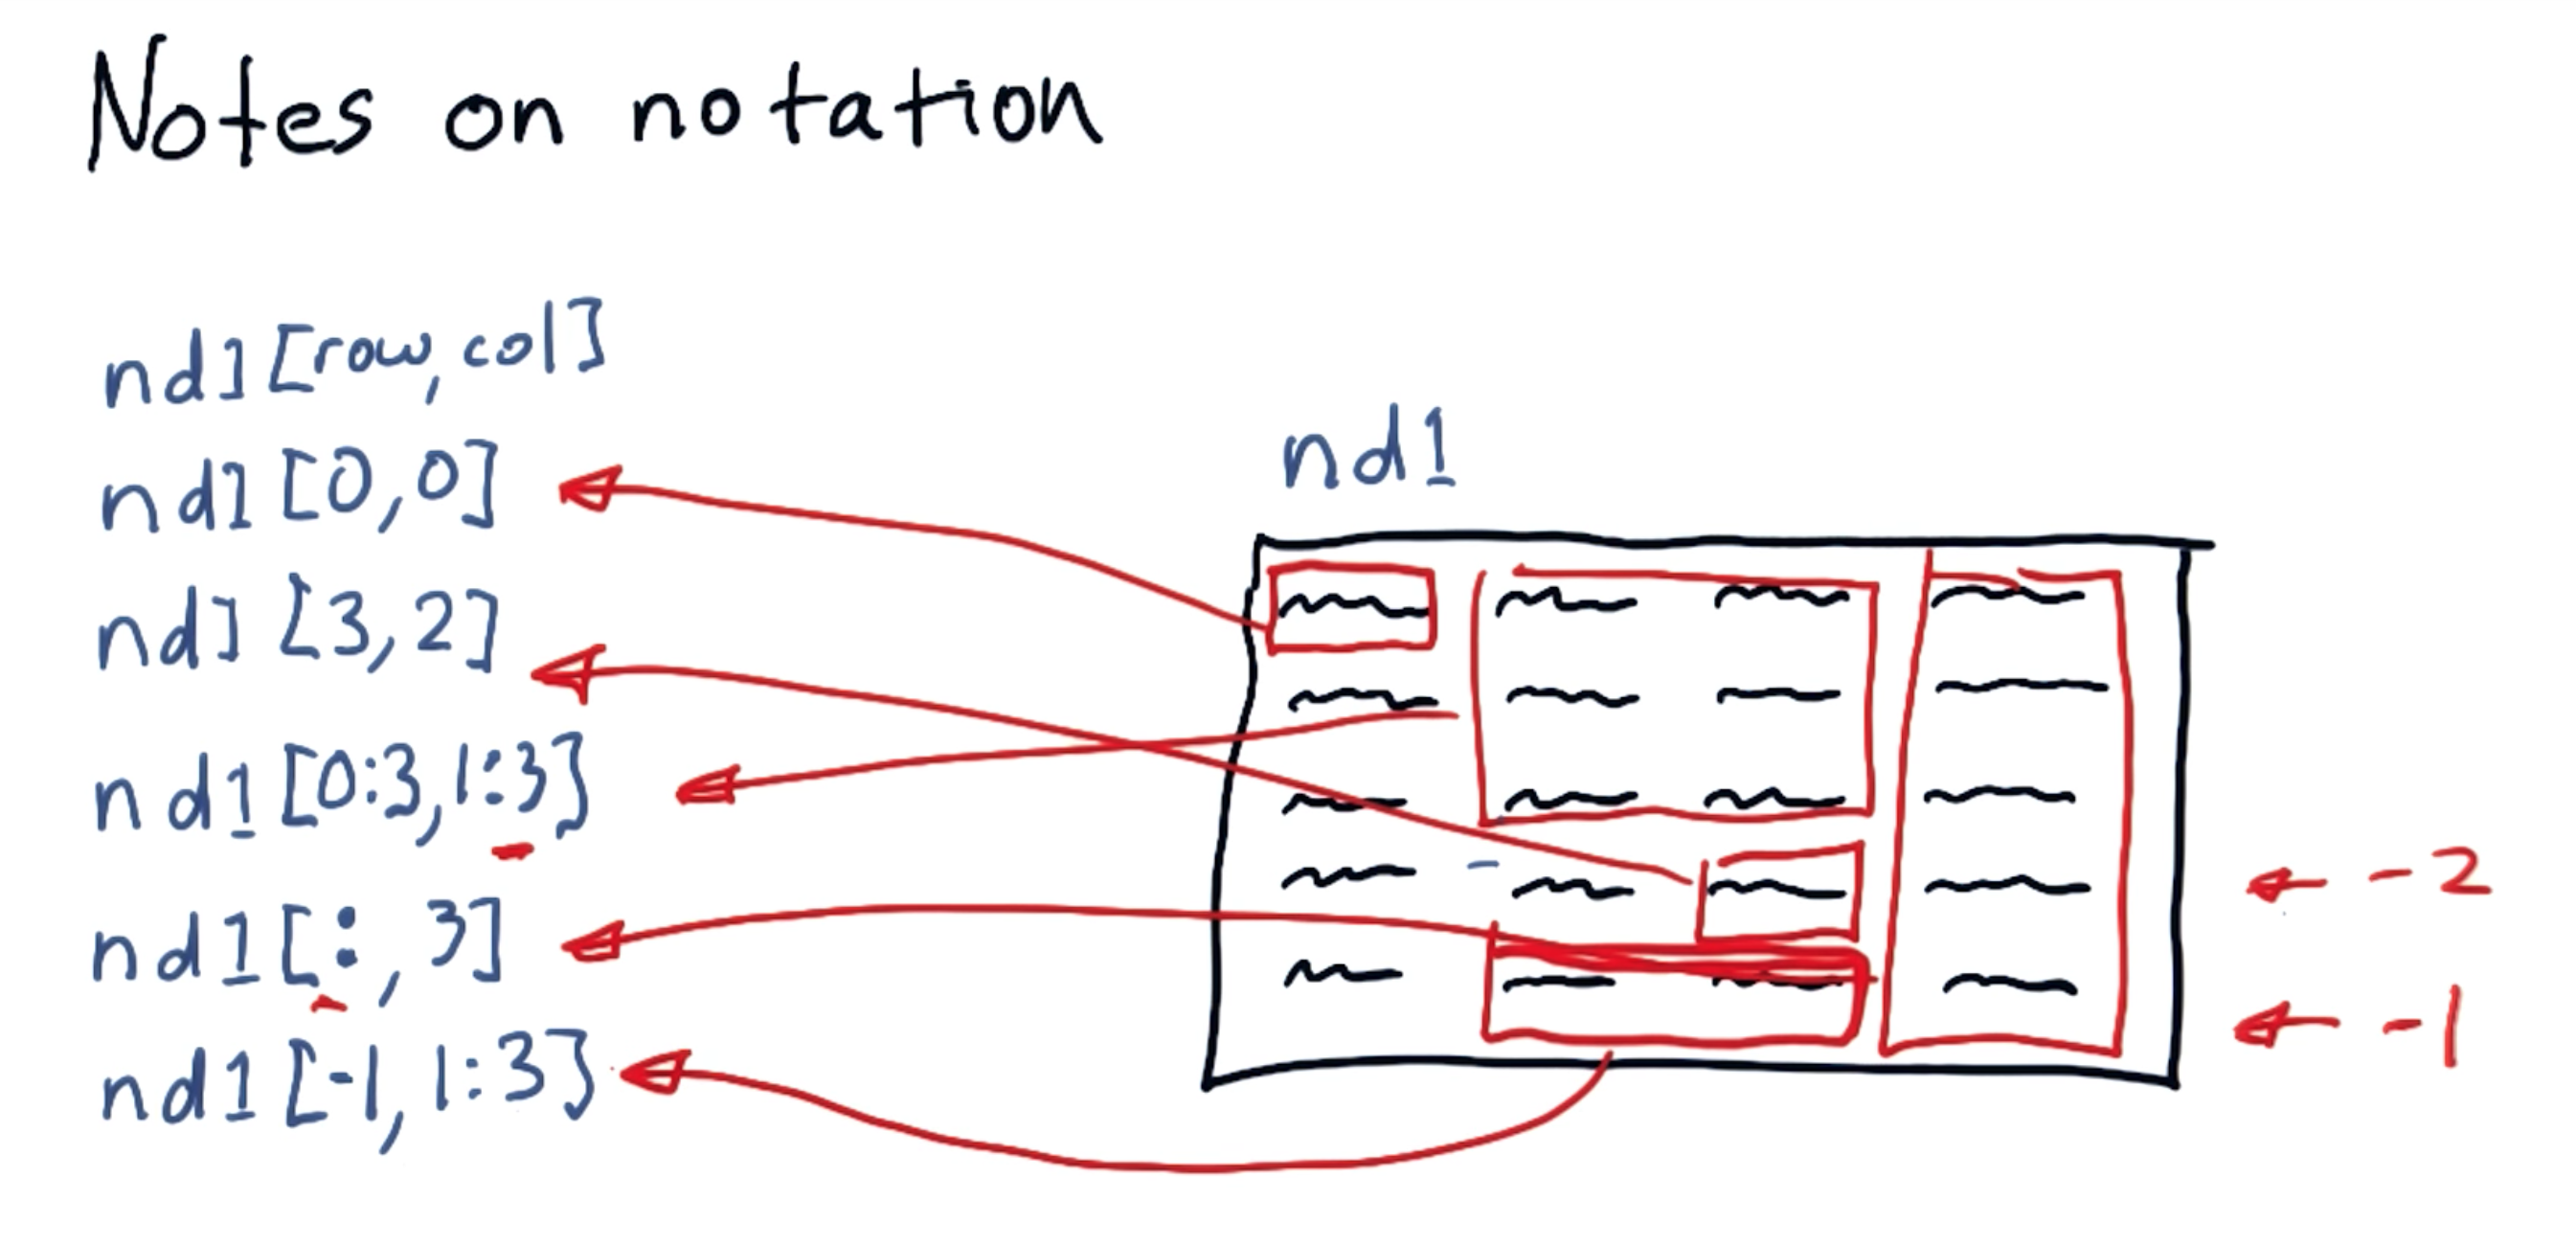 Notes on notation
nd1[row,col]
nd1[0,0]
nd1[3,2]
nd1[0:3,1:3]
nd1[:,3]
nd1[-1,1:3]
nd1
-2
-1